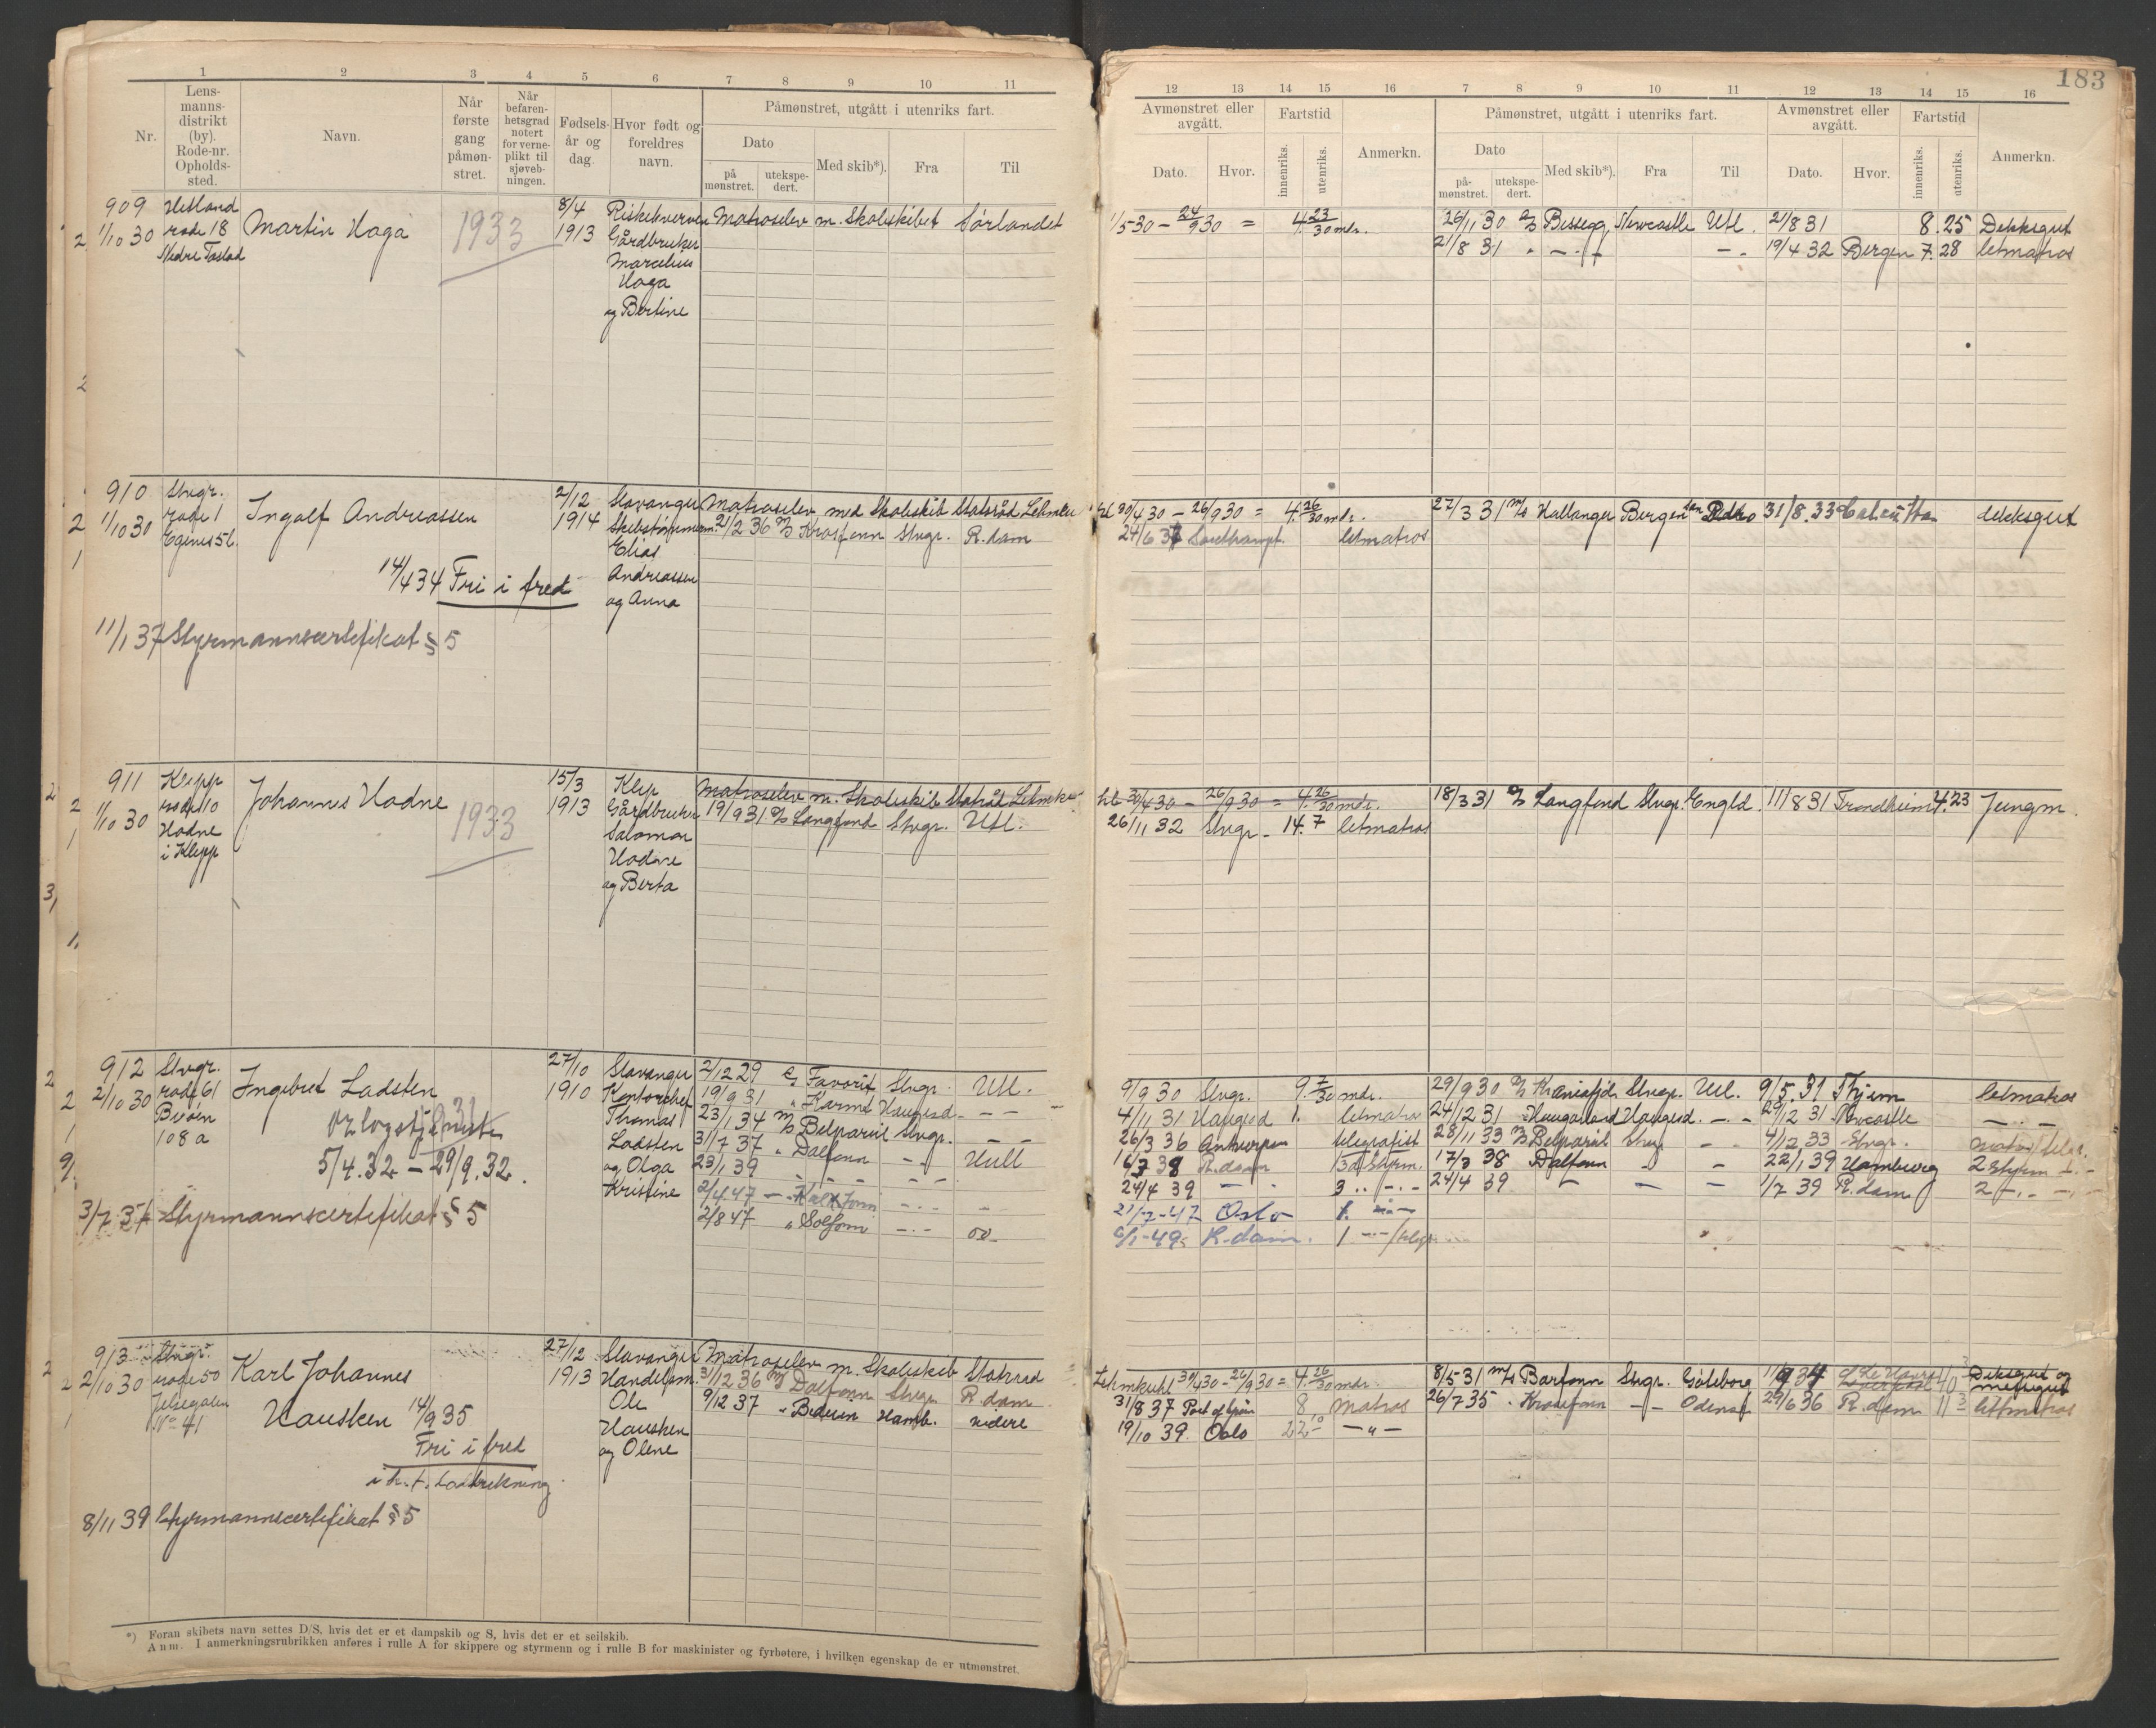 183
1 2 3 4 5 6 7 8 9 10 11
Nr.
Lens-
manns-
distrikt
(by).
Rode-nr.
Opholds-
sted.
Navn.
Når
første
gang
påmøn-
stret.
Når
befaren-
hetsgrad
notert
for verne-
plikt til
sjøveb-
ningen.
Fødsels-
år og
dag.
Hvor født og
foreldres
navn.
Påmønstret, utgått i utenriks fart.
Dato
på
mønstret.
utekspe-
dert.
Med skib*).
Fra
Til
909 Hetland
1/10 30 rode 18 Martin Haga 1933
Nedre Tastad
8/4
1913
Riskekverven
Gårdbruker
Marcelius
Haga
og Bertine
Matroselev m. Skoleskibet Sørlandet
910 Stvgr.
1/10 30 rode 1 Ingolf Andreassen
Eginesst.
14/4 34 Fri i fred
11/1 37 Styrmannscertifikat § 5
2/12
1914
Stavanger
Skibstømmerm.
Elias
Andreassen
og Anna
Matroselev med Skoleskib Statsråd Lehmku
21/2 36 M/S Krosfonn Stvgr. R.dam
911 Klepp
1/10 30 rode 10 Johannes Hodne 1933
Hodne
i Klepp
15/3
1913
Klep
Gårdbruker
Salomon
Hodne
og Berta
Matroselev m. Skoleskib Statsråd Lehmku
19/9 31 D/S Langfond Stvgr. Utl.
912 Stvgr.
2/10 30 rode 61 Ingebret Ladsten
Bieen
108 a
Orlogstjeneste
5/4.32 – 29/9.32.
3/7 37 Styrmannscertifikat § 5
27/10
1910
Stavanger
Kontorchef
Thomas
Ladsten
og Olga
Kristine
2/12 29 Favorit Stvgr. Utl.
19/9 31 " Karmt Haugesd. – – –
23/1 34 M/S Belpareil Stvgr. – –
31/7 37 " Dalfonn – " – Hull
23/1 39 – – – – –
2/4 47
2/8 47 " Solfonn – . – oo
913 Stvgr.
2/10 30 rode 50 Karl Johannes
Jelsegaten
No 41 Hausken 14/9 35
Fri i fred
i h. t. Lodtrekning.
8/11 39 Styrmannscertifikat § 5
27/12
1913
Stavanger
Handelsm.
Ole
Hausken
og Olene
Matroselev m. Skoleskib Statsraad
31/12 36 M/S Dalfonn Stvgr. R.dam
9/12 37 " Beduin Hamb. videre
*) Foran skibets navn settes D/S, hvis det er et dampskib og S, hvis det er et seilskib.
Anm. I anmerkningsrubrikken anføres i rulle A for skippere og styrmenn og i rulle B for maskinister og fyrbøtere, i hvilken egenskap de er utmønstret.
12 13 14 15 16 7 8 9 10 11 12 13 14 15 16
Avmønstret eller
avgått.
Dato.
Hvor.
Fartstid
innenriks.
utenriks.
Anmerkn.
Påmønstret, utgått i utenriks fart.
Dato
på-
mønstret.
utekspe-
dert.
Med skib*).
Fra
Til
Avmønstret eller
avgått.
Dato.
Hvor.
Fartstid
innenriks.
utenriks.
Anmerkn.
1/5-30 – 24/9 30 = 4 23/30 mdr. 26/11 30 D/S Bessegg. Newcastle Utl. 21/8 31 8.25 Dekksgut
21/8 31 " – " – – " 19/4 32 Bergen 7.28 letmatros
hl 30/4 30 – 26/9 30 = 4 26/30 mdr. 27/3 31 M/S Hallanger Bergen 31/8.33 dekksgut
24/6 37 Southampt. letmatros
hl 30/4 30 – 26/9 30 = 4 26/30 mdr. 18/3 31 D/S Langfond Stvgr. Engld. 11/8 31 Trondheim 4.23 Jungm.
26/11 32 Stvgr. – 14.7 letmatros
9/9 30 Stvgr. 9 7/30 mdr. 29/9 30 D/S Stvgr. Utl. 9/5.31 letmatros
4/11 31 Haugesd 1. letmatros 24/12 31 Haugarland Haugesd. – . – 29/12 31 Newcastle – . . –
26/3 36 Antwerpen telegrafist 28/11 33 M/S Belpareil Stvg – 4/12 33 Stvgr. matros/telgr.
16/3 38 R.dam 3d. Styrm. 17/3 38 Dalfonn – – 22/1 39 Hamburg 2 Styrm – . –
24/4 39 – – 3 " – . – 24/4 39 – – – 1/7 39 R.dam 2 – . – – . –
21/7-47 Oslo 1. – " –
6/1-49. R.dam. 1 – " – /telgr.
Lehmkuhl 30/4 30 – 26/9 30 = 4. 26/30 mdr. 8/5-31 M/S Barfonn Stvgr. Gøteborg Dekksgut og
31/8 37 Port of Spain 8 matros 26/7 35 " Krosfonn – " – Odense 29/6 36 R.dam 11 lettmatros
19/10 39. Oslo 22 10 – " –